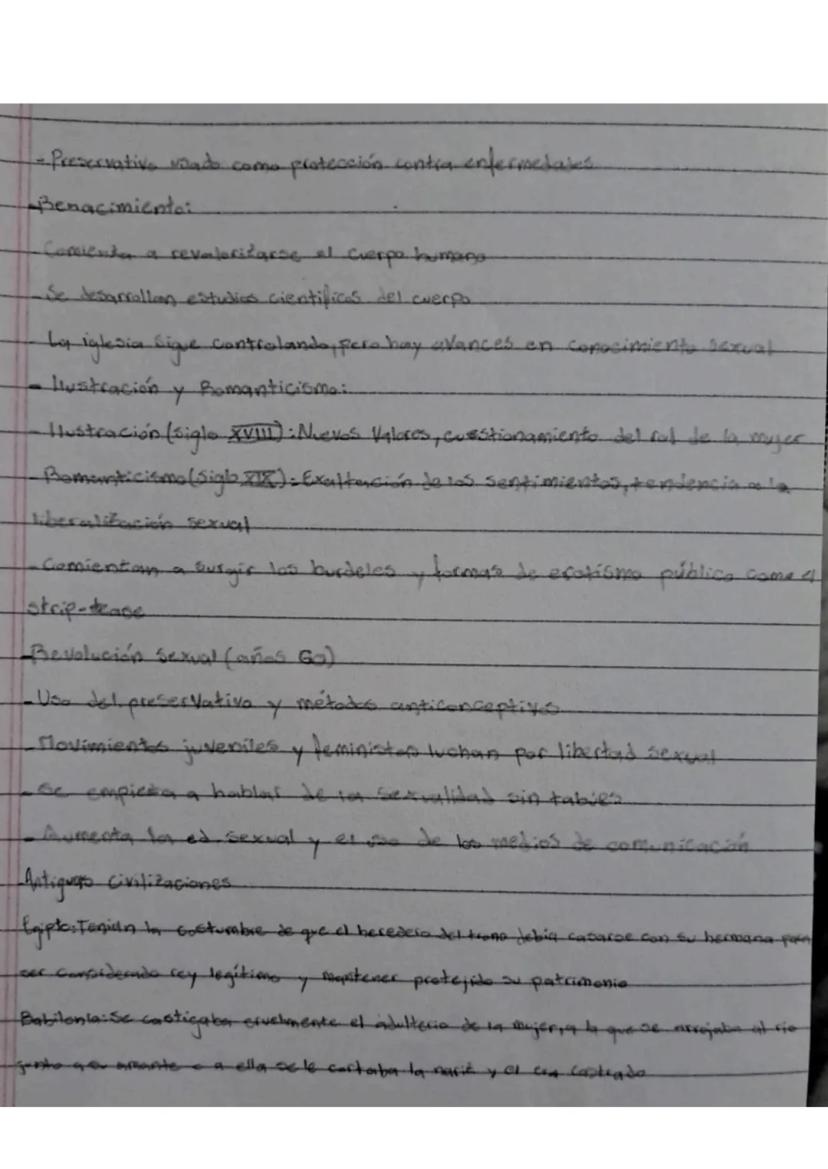 - Preservativo usado como protección contra enfermedades
- Renacimiento:
Comienza a revalorizarse el cuerpo humano
- Se desarrollan estudios cientificos del cuerpo
- La iglesia sigue controlando, pero hay avances en conocimiento sexual
- Ilustración y Romanticismo:
- Ilustración (siglo XVIII): Nuevos Valores, cuestionamiento del rol de la mujer
- Romanticismo (siglo XIX): Exaltación de los sentimientos, tendencia a la
liberalización sexual
- Comienzan a surgir los burdeles y formas de erotismo público como el
strip-tease
- Revolución sexual (años 60)
- Uso del preservativo y métodos anticonceptivos
- Movimientos juveniles y feministas luchan por libertad sexual
- Se empieza a hablar de la sexualidad sin tabúes
- Aumenta la ed. sexual y el uso de los medios de comunicación
Antiguas civilizaciones
Egipto: Tenían la costumbre de que el heredero del trono debía casarse con su hermana para
ser considerado rey legítimo y mantener protejido su patrimonio
Babilonia: Se castigaba cruelmente el adulterio de la mujer, a la que se arrojaba al río
junto a su amante o a ella se le cortaba la nariz y el era castrado